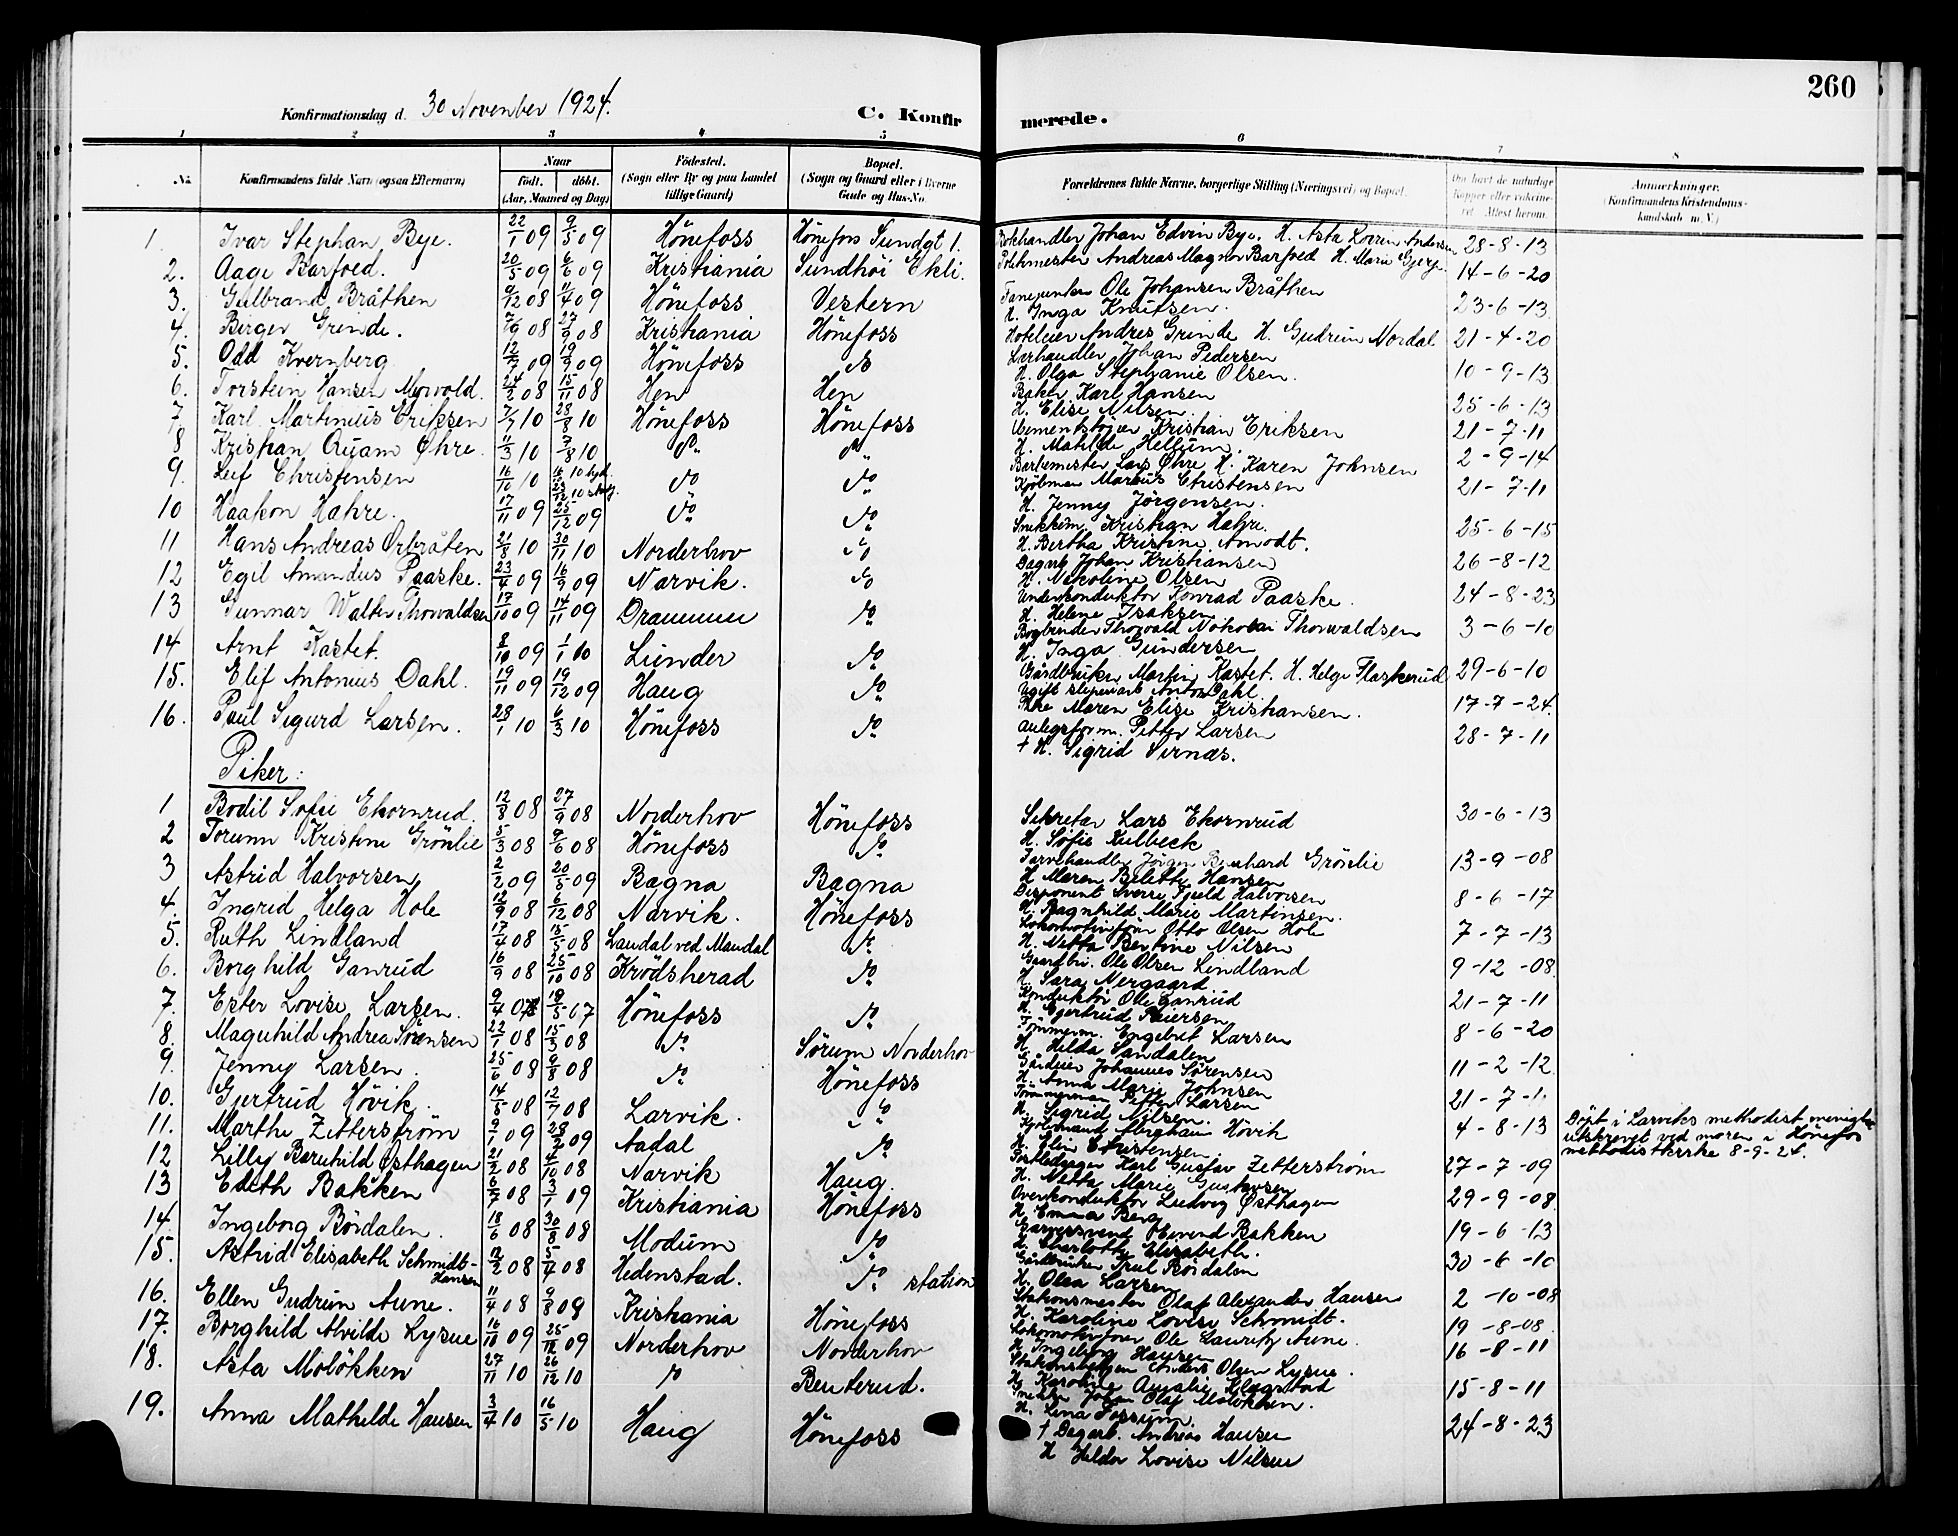 260
Konfirmationsdag d. 30 November 1924.
C. Konfirmerede.
1 2 3 4 5 6 7 8
No.
Konfirmandens fulde Navn (ogsaa Efternavn)
Naar
födt. döbt.
(Aar, Maaned og Dag)
Födested.
(Sogn eller By og paa Landet
tillige Gaard)
Bopæl.
(Sogn og Gaard eller i Byerne
Gade og Hus-No.
Forældrenes fulde Navne, borgerlige Stilling (Næringsvei) og Bopæl.
Om havt de naturlige
Kopper eller vakcine-
ret. Attest herom.
Anmærkninger.
(Konfirmandens Kristendoms-
kundskab m. V.)
1. Ivar Stephan Bye. 22/1 09 9/5 09 Hönefoss Hönefoss Sundgt 1. Johan Edvin Bye. H. Asta Andersen 28-8-13
2. Aage Barfoed. 20/5 09 6/6 09 Kristiania Sundhöi Ekli. Andreas Magnor Barfoed H. Marie 14-6-20
3. Gulbrand Bråthen 9/12 08 11/4 09 Hönefoss Vestern Ole Johansen Bråthen
H. Inga Knutsen. 23-6-13
4. Birger Grinde. 7/9 08 27/9 08 Kristiania Hönefoss Hoteleier Andres Grinde H. Gudrun Nordal 21-4-20
5. Odd Kvernberg 12/7 09 19/9 09 Hönefoss Do Lærhandler Johan Pedersen
H. Olga Stephanie Olsen. 10-9-13
6. Torstein Hansen Morvold. 24/2 08 15/11 08 Hen Hen Baker Karl Hansen
H. Elise Nilsen. 25-6-13
7 Karl Martinius Eriksen 7/7 10 28/8 10 Hönefoss Hönefoss Kristian Eriksen
H. Matilde Hellum. 21-7-11
8 Kristian Quam Øhre. 11/3 10 7/8 10 Do Do Lars Øhre H. Karen Johnsen 2-9-14
9. Leif Christensen 16/10 10 Do Do Kjøbman Marius Christensen
H. Jenny Jörgensen. 21-7-11
10 Haakon Hahre. 17/11 09 25/12 09 Do Do Snekkerm. Kristian Hahre.
H. Bertha Kristine Amodt. 25-6-15
11 Hans Andreas Orbråten 21/8 10 30/11 10 Norderhov Do Dagarb Johan Kristiansen
H. Nikoline Olsen 26-8-12
12 Egil Amandus Paaske. 23/4 09 16/9 09 Narvik. Do Underkonduktör Konrad Paaske.
H. Helene Isaksen 24-8-23
13 Gunnar Walter Thorvaldsen 17/10 09 14/11 09 Drammen Do Bogbinder Thorvald Nikolai Thorwaldsen
H. Inga Gundersen 3-6-10
14 Arnt Kastet. 8/10 09 1/1 10 Lunder Do Gårdbruker Martin Kastet. H. Helge Flaskerud 29-6-10
15. Elif Antonius Dahl. 19/11 09 19/12 09 Haug Do Ugift sliperiarb Anton Dahl.
Pike Maren Elise Kristiansen. 17-7-24.
16. Paul Sigurd Larsen. 28/1 10 6/3 10 Hönefoss Do Anlegsform. Petter Larsen
† H. Sigrid Sirnæs. 28-7-11
Piker:
1 Bodil Sofie Ekornrud. 12/8 08 27/9 08 Norderhov Hönefoss Sekretær Lars Ekornrud
H. Sofie Kulbeck 30-6-13
2 Torunn Kristine Grönlie 5/3 08 9/6 08 Hönefoss Do Farvehandler Jörgen Bernhard Grönlie
H Maren Hansen 13-9-08
3 Astrid Halvorsen 2/2 09 20/5 09 Bagna Bagna Disponent Sverre Fjeld Halvorsen
H. Ragnhild Marie Martinsen. 8-6-17
4. Ingrid Helga Hole 12/9 08 6/12 08 Narvik. Hönefoss Lokomotivförer Otto Olsen Hole
H. Netta Bertine Nilsen 7-7-13
5. Ruth Lindland 17/4 08 15/5 08 Laudal ved Mandal Do Gaardbr. Ole Olsen Lindland
H. Sara Mergaard 9-12-08.
6. Borghild Ganrud 16/9 08 25/10 08 Krödsherad Do Konduktör Ole Ganrud
H. Gjertrud Peiersen 21-7-11
7. Ester Lovise Larsen. 9/4 07 19/5 07 Hönefoss Do Tömmerm. Engebret Larsen
H Hilda Sandalen 8-6-20
8. Magnhild Andrea Sörensen 22/1 08 15/3 08 Do Sörum Norderhov Gårdeier Johannes Sörensen
H. Anna Marie Johnsen 11-2-12.
9. Jenny Larsen. 25/6 08 9/8 08 Do Hönefoss Tömmerman Petter Larsen
H. Sigrid Nilsen. 21-7-1
10. Gjertrud Hövik. 14/5 08 12/7 08 Larvik. Do Abraham Hövik
H. Elin Christensen. 4-8-13 Döpt i Larviks methodist menighet
utskrevet ved moren i Hönefos
methodistkirke 8-9-24.
11. Marthe Zetterström 9/1 09 28/2 09 Aadal Do Karl Gustav Zetterström
H. Netta Marie Gustavsen 27-7-09
12 Lilly Bernhild Østhagen 21/2 08 4/10 08 Narvik Haug. Overkonduktör Ludvig Østhagen
H Emma Berg 29-9-08.
13 Edith Bakken 6/7 08 3/1 09 Kristiania Hönefoss Garversvend Bakken
H. Charlotte Elisabeth. 19-6-13
14. Ingeborg Bördalen. 18/6 08 30/8 08 Modum Do Gårdbruker Trul Bördalen
H. Olea Larsen 30-6-10
15. Astrid Elisabeth Schmidt-
Hansen 12/2 08 5/4 08 Hedenstad. Do station Stationsmester Olaf Alexander Hansen
H. Karoline Lovise Schmidt. 2-10-08
16. Ellen Gudrun Aune. 11/4 08 9/8 08 Kristiania Hönefoss Lokomotivförer Ole Lauritz Aune.
H Ingeborg Hansen 19-8-08.
17. Borghild Alvilde Lysne 16/10 09 25/12 09 Norderhov Norderhov Anders Olsen Lysne.
H. Karoline Amalie 16-8-11
18. Asta Molökken 27/11 10 26/12 10 Do Benterud. Johan Olaf Molökken.
H. Lina Fossum. 15-8-11
19. Anna Mathilde Hansen 3/4 10 16/5 10 Haug Hönefoss † Dagarb. Andreas Hansen
H Hilda Lovise Nilsen 24-8-23